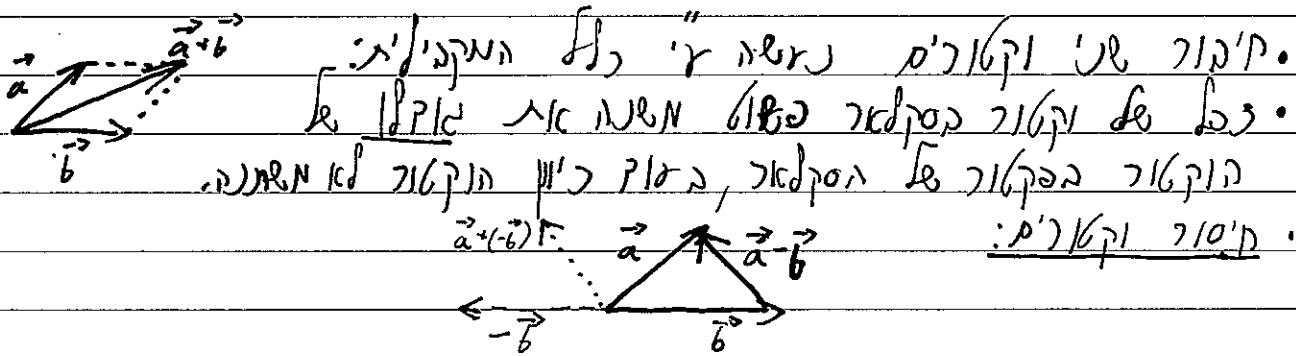 • חיבור שני וקטורים נעשה ע"י כלל המקבילית:
\vec{a} \vec{a}+\vec{b} \vec{b}
• כפל של וקטור בסקלאר פשוט משנה את גודלו של
הוקטור בפקטור של הסקלאר, בעוד כיוון הוקטור לא משתנה.
• חיסור וקטורים:
\vec{a}+(-\vec{b}) \vec{a} \vec{a}-\vec{b}
-\vec{b} \vec{b}